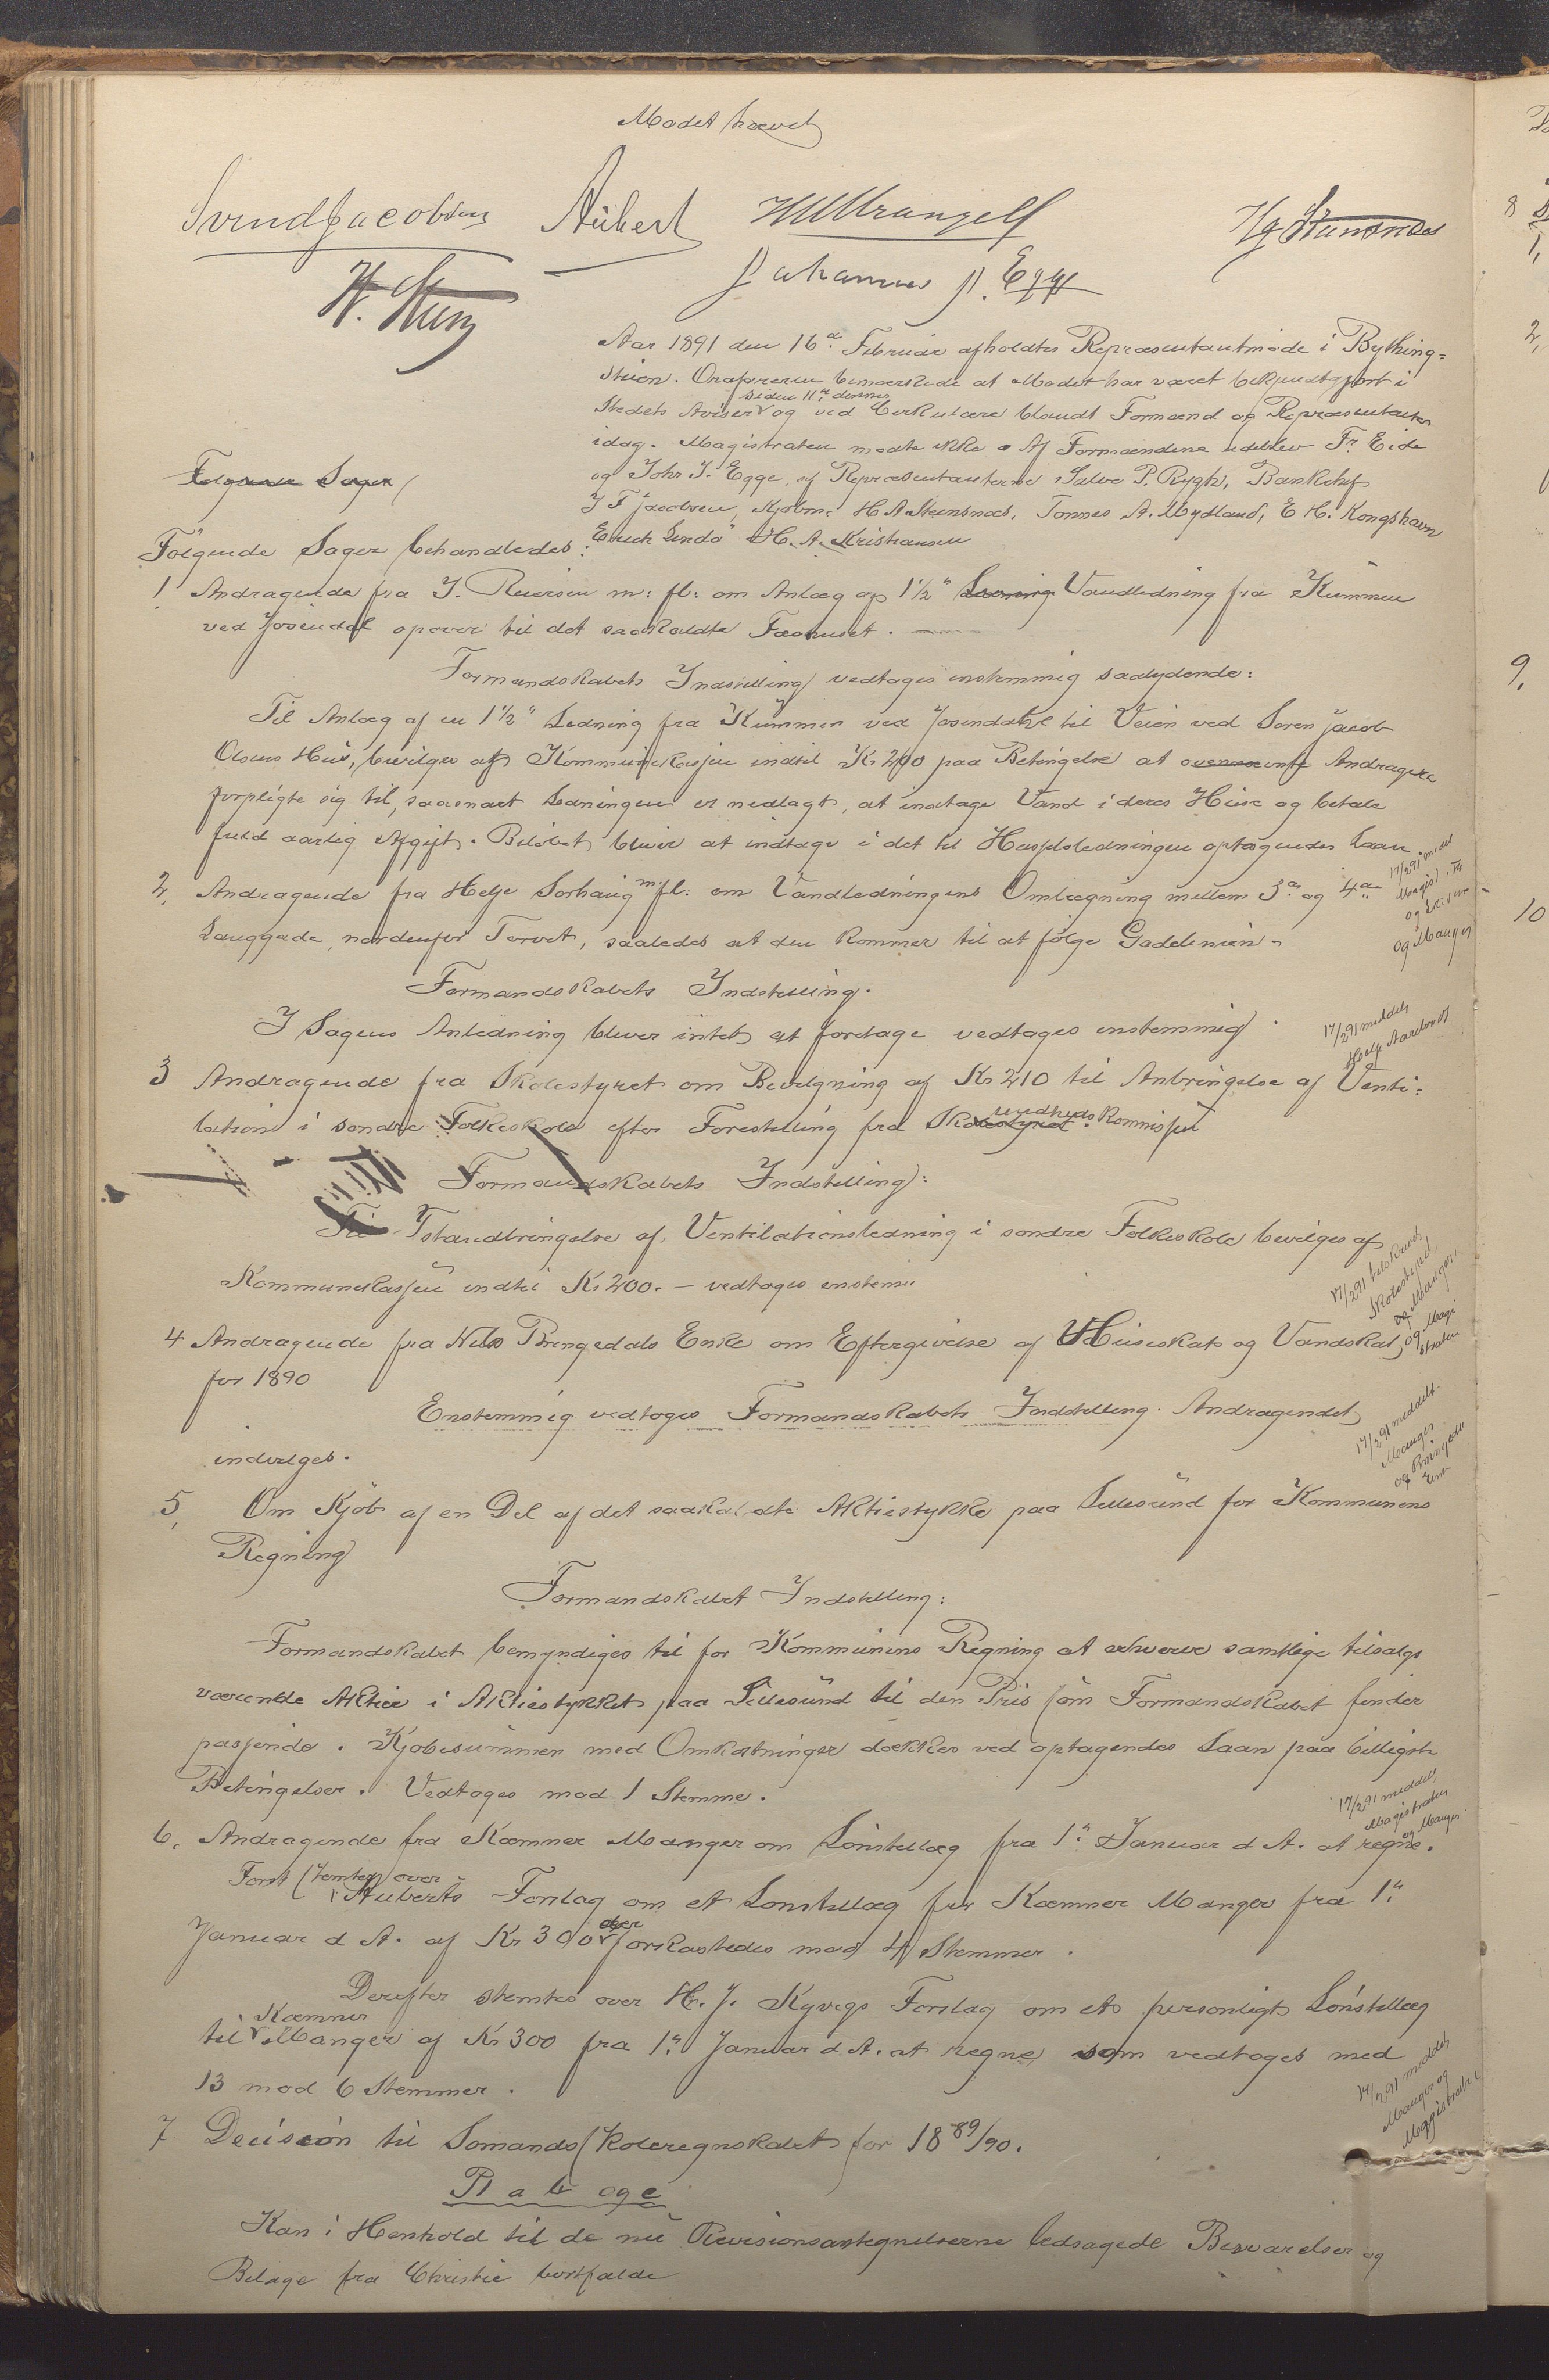 Mødet hævet
Svend Jacobsen Aubert HMWrangell
H. Steen Johannes J. Egge
Aar 1891 den 16de Februar afholdtes Repræsentantmøde i Bything-
stuen. Ordføreren bemærkede at Mødet har været bekjendtgjort i
siden 11te dennes
Stedets Aviser og ved Cirkulære blandt Formænd og Repræsentanter
idag. Magistraten mødte ikke. Af Formændene udeblev Fr. Eide
og Johs J. Egge, af Repræsentanterne Salve P. Rygh, Bankchef
J F Jacobsen, Kjøbm. H A Steensnæs, Tønnes A. Mydland, E H. Kongshavn
Følgende Sager
Erick Lindø H. A. Kristiansen
Følgende Sager behandledes:
1 Andragende fra J. Reiersen m: fl: om Anlæg af 1 1/2" Ledning Vandledning fra Kummen
ved Josendal opover til det saakaldte Fæhuset.
Formandskabets Indstilling vedtoges enstemmig saalydende:
Til Anlæg af en 1 1/2" Ledning fra Kummen ved Josendahl til Veien ved Søren Jacob
Olsens Hus, bevilges af Kommunekassen indtil Kr 200 paa Betingelse at ovennævnte Andragere
forpligte sig til, saasnart Ledningen er nedlagt, at indtage Vand i deres Huse og betale
fuld aarlig Afgift. Beløbet bliver at indtage i det til Husfeldsledningen optagendes Laan.
17/2 91 meddel
Magist.
og
og Manger
2, Andragende fra Helje Sørhaug m/fl: om Vandledningens Omlægning mellem 3die og 4de
Langgade, nordenfor Torvet, saaledes at den kommer til at følge Gadelinien.
Formandskabets Indstilling.
I Sagens Anledning bliver intet at foretage vedtages enstemmig.
17/2 91 meddelt
Helje
3 Andragende fra Skolestyret om Bevilgning af Kr 210 til Anbringelse af Venti-
lation i søndre Folkeskole efter Forestilling fra Skolestyret Sundheds Kommissjon
Formandskabets Indstilling:
Til Istandbringelse af Ventilationsledning i søndre Folkeskole bevilges af
Kommunekassen indtil Kr 200. – vedtoges enstem:
17/2 91 tilskrevet
Skolestyret
og Manger
og Magi
straten
4 Andragende fra Nils Bringedals Enke om Eftergivelse af Huseskat og Vandskat
for 1890
Enstemmig vedtoges Formandskabets Indstilling. Andragendet
indvilges.
17/2 91 meddelt
Manger
og Bringedals
Enke
5, Om Kjøb af en Del af det saakaldte Aktiestykke paa Lillesund for Kommunens
Regning
Formandskabet Indstilling:
Formandskabet bemyndiges til for Kommunens Regning at erhverve samtlige tilsalgs
værende Aktier i Aktiestykket paa Lillesund til den Pris som Formandskabet finder
passende. Kjøbesummen med Omkostninger dækkes ved optagendes Laan paa billigste
Betingelser. Vedtoges mod 1 Stemme.
17/2 91 meddelt
Magistraten
og Manger
6, Andragende fra Kæmner Manger om Lønstillæg fra 1te Januar d A. at regne.
Først stemtes over
Auberts Forslag om et Lønstillæg for Kæmner Manger fra 1te
Januar d A. af Kr 300 der forkastedes mod 4 Stemmer.
Derefter stemtes over H. J. Kyvigs Forslag om et personligt Lønstillæg
Kæmner
til Manger af Kr 300 fra 1te Januar d A. at regne som vedtoges med
13 mod 6 Stemmer.
17/2 91 meddelt
Manger og
Magistraten
7 Decision til Sømandsskoleregnskabet for 1889/90.
P1 a b og c
Kan i Henhold til de nu Revisionsantegnelserne ledsagede Besvarelser og
Bilage fra Christie bortfalde